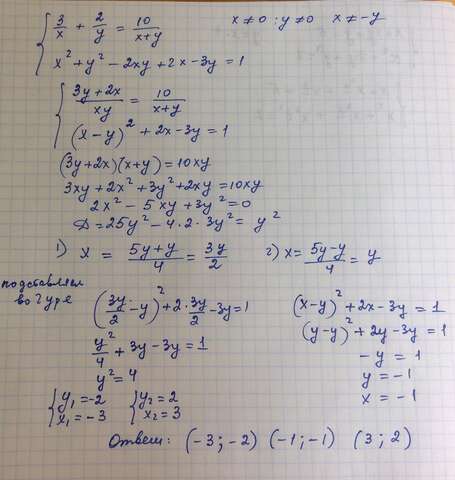 3/x + 2/y = 10/(x+y)    x ≠ 0 ; y ≠ 0    x ≠ -y
x² + y² - 2xy + 2x - 3y = 1
(3y + 2x)/(xy) = 10/(x+y)
(x - y)² + 2x - 3y = 1
(3y + 2x)(x + y) = 10xy
3xy + 2x² + 3y² + 2xy = 10xy
2x² - 5xy + 3y² = 0
D = 25y² - 4·2·3y² = y²
1) x = (5y + y)/4 = 3y/2    2) x = (5y - y)/4 = y
подставляем
во 2 уре
(3y/2 - y)² + 2·3y/2 - 3y = 1    (x - y)² + 2x - 3y = 1
y²/4 + 3y - 3y = 1    (y - y)² + 2y - 3y = 1
y² = 4    -y = 1
y₁ = -2    y₂ = 2    y = -1
x₁ = -3    x₂ = 3    x = -1
Ответ: (-3; -2) (-1; -1) (3; 2)